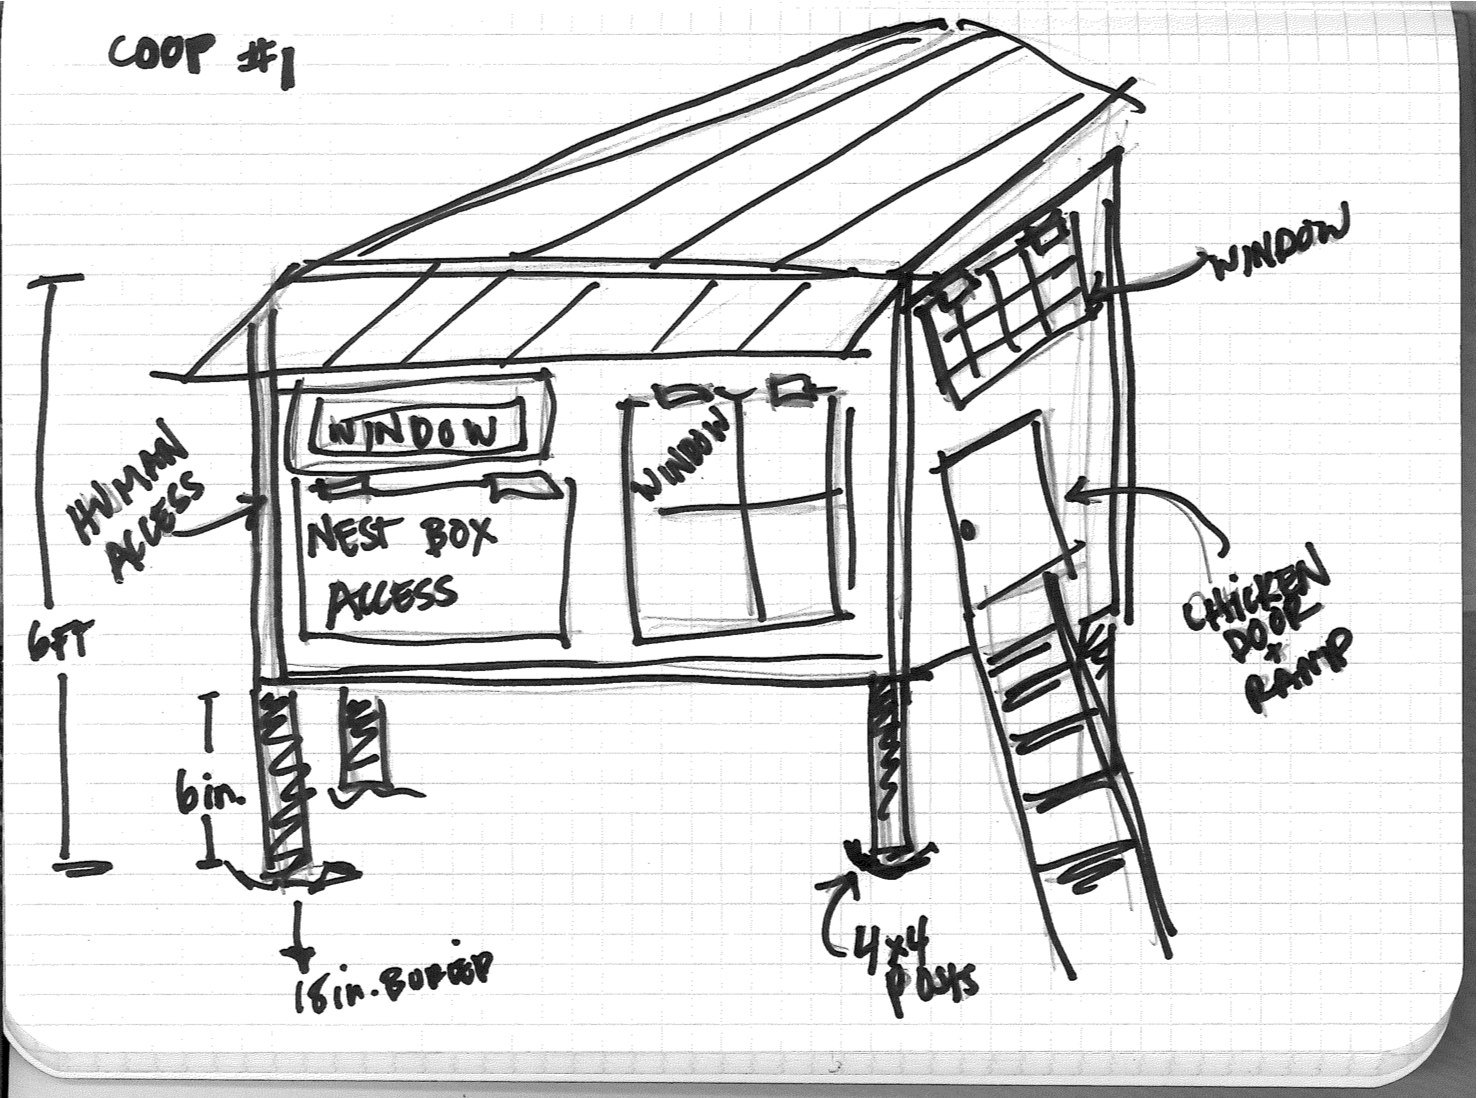 COOP #1
WINDOW
WINDOW
WINDOW
HUMAN
ACCESS
NEST BOX
ACCESS
6FT
CHICKEN
DOOR
+
RAMP
6in.
4x4
POSTS
18in. BURIED